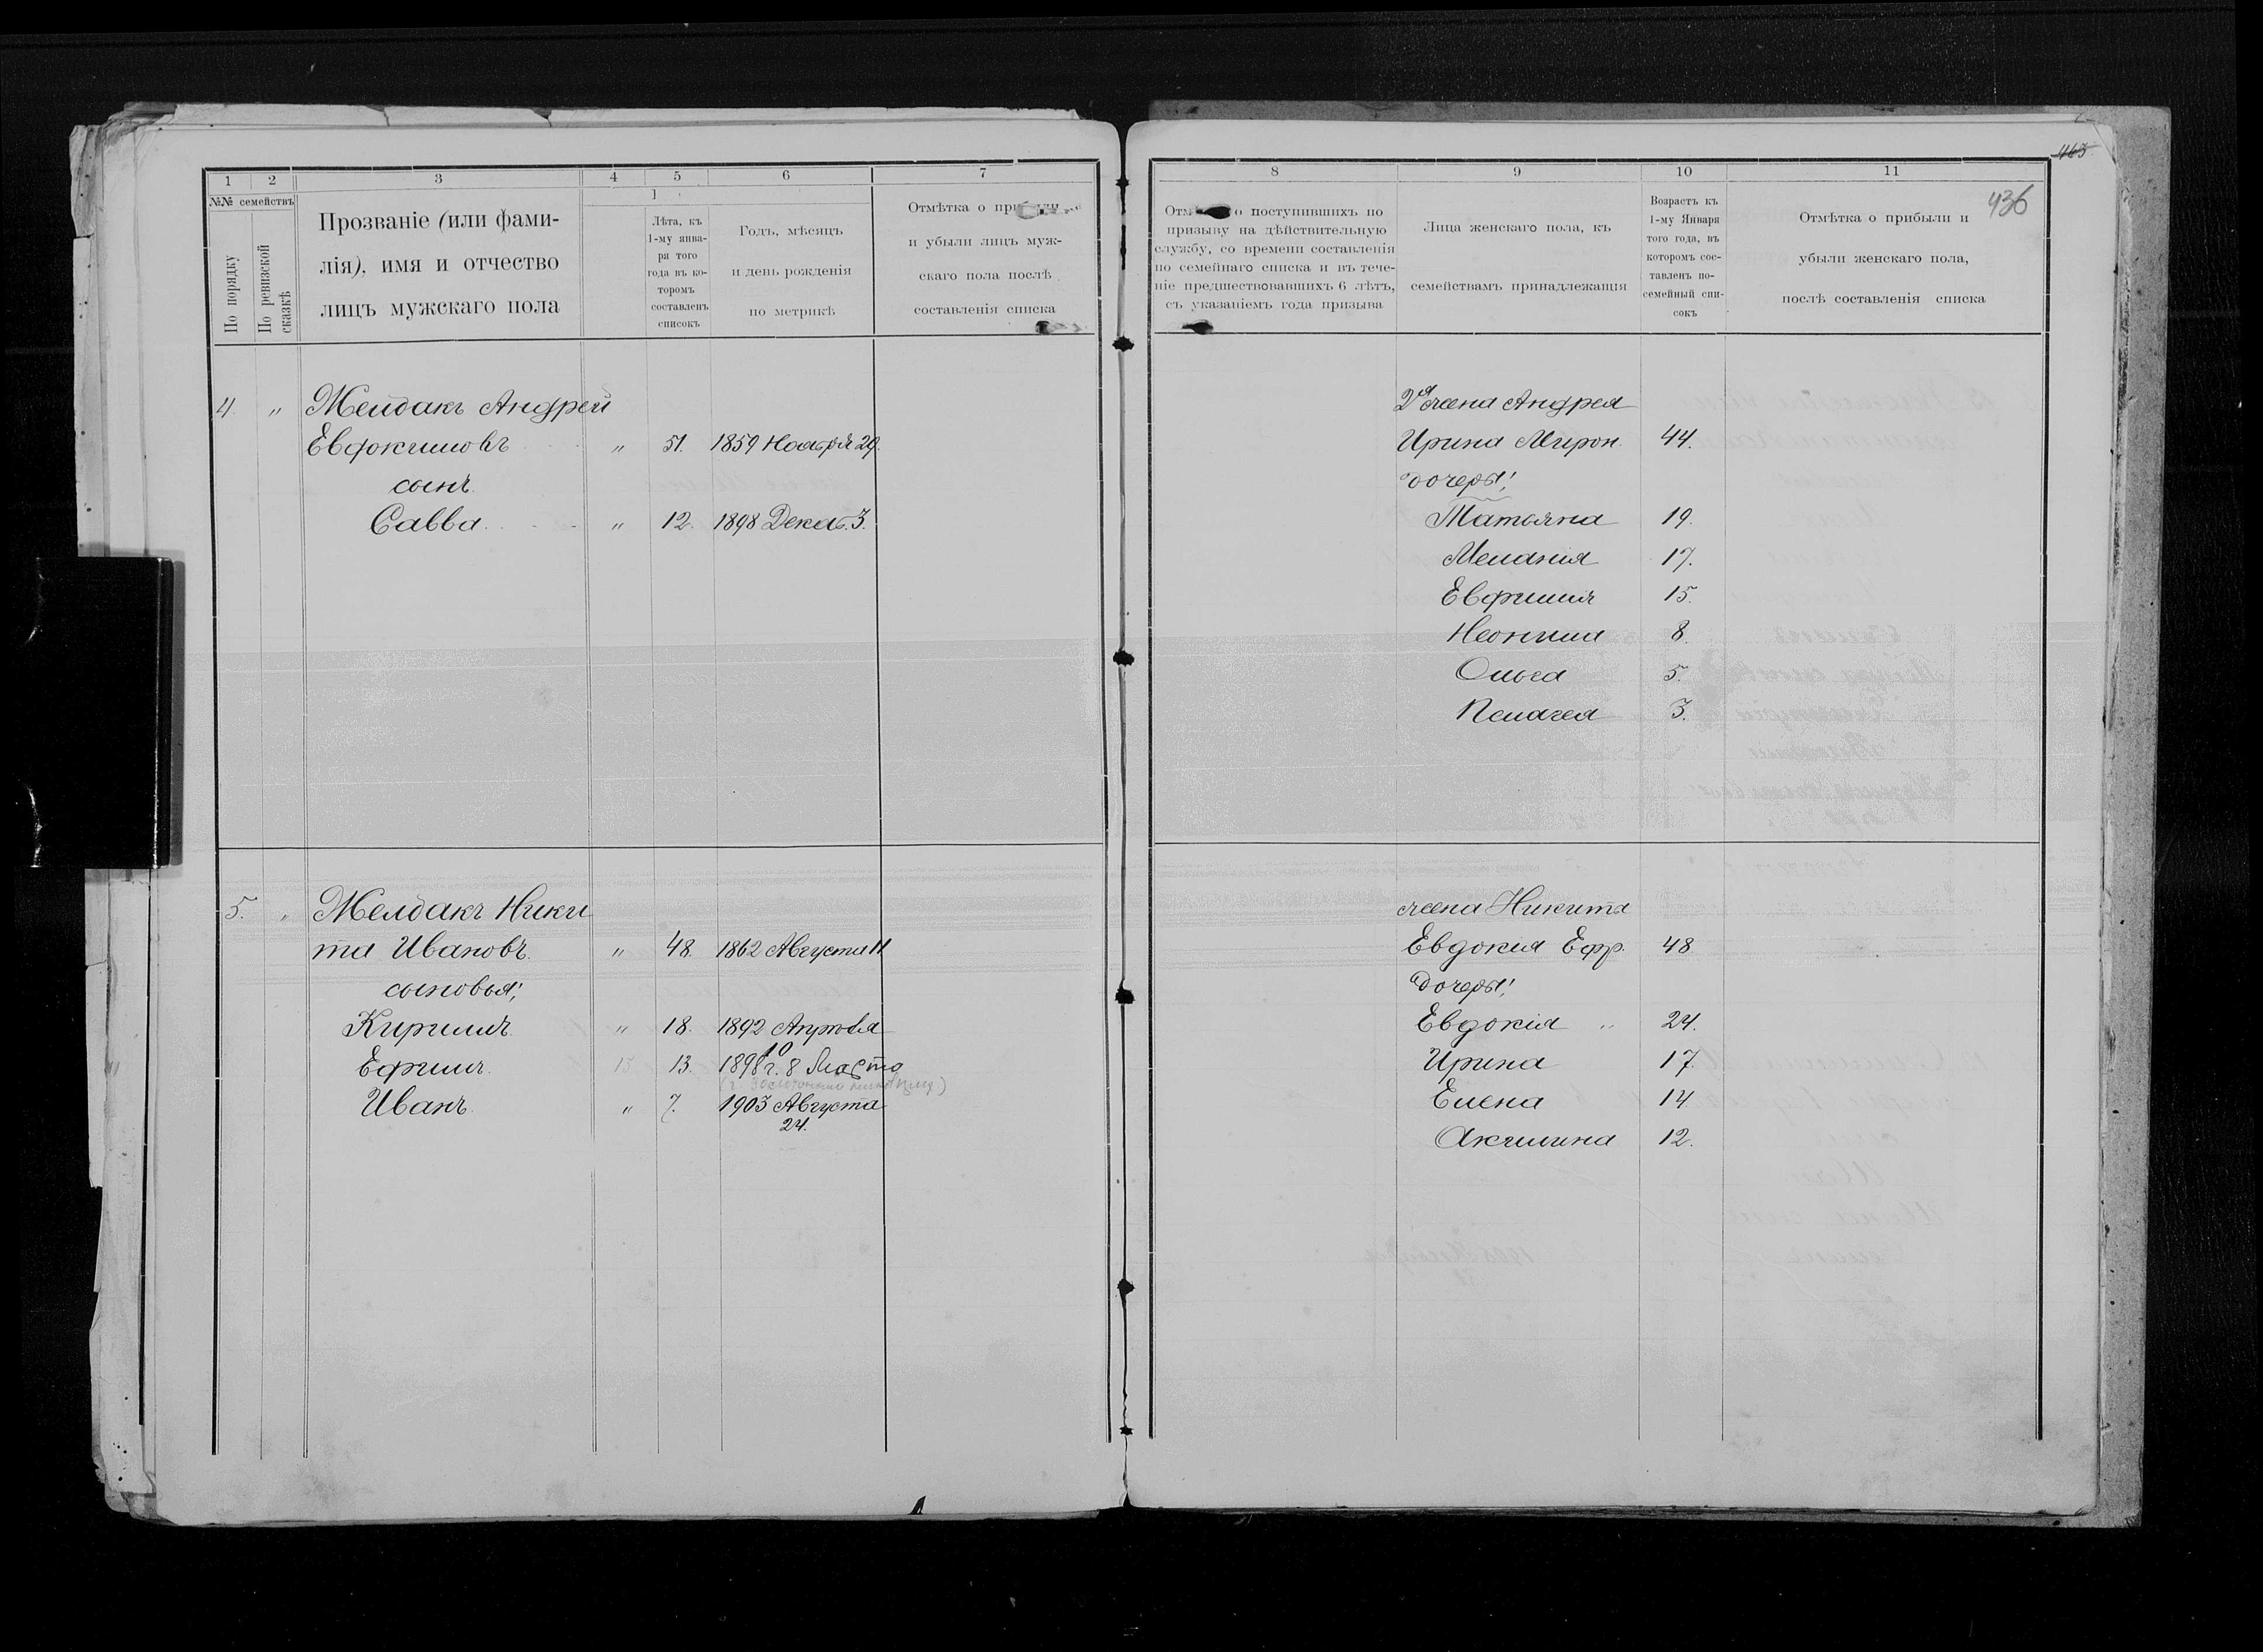 463
436
1 2 3 4 5 6 7
№№ семействъ
По порядку
По ревизской сказкѣ
Прозваніе (или фами-
лія), имя и отчество
лицъ мужскаго пола
Лѣта, къ
1-му янва-
ря того
года въ ко-
торомъ
составленъ
списокъ
Годъ, мѣсяцъ
и день рожденія
по метрикѣ
Отмѣтка о
и убыли лицъ муж-
скаго пола послѣ
составленія списка
4 " Мелдакъ Андрей
Евдокимовъ " 51. 1859 Ноября 29.
сынъ
Савва " 12. 1898 Декаб. 3.
5. " Мелдакъ Ники
та Ивановъ " 48. 1862 Августа 11
сыновья:
Кириллъ " 18. 1892 Апрѣля
10
Ефимъ 15 13. 1898 г. 8 Марта
Иванъ " 7. 1903 Августа
24.
8 9 10 11
о поступившихъ по
призыву на дѣйствительную
службу, со времени составленія
по семейнаго списка и въ тече-
ніе предшествовавшихъ 6 лѣтъ,
съ указаніемъ года призыва
Лица женскаго пола, къ
семействамъ принадлежащія
Возрастъ къ
1-му Января
того года, въ
которомъ сос-
тавленъ по-
семейный спи-
сокъ
Отмѣтка о прибыли и
убыли женскаго пола,
послѣ составленія списка
2я жена Андрея
Ирина Мирон. 44.
дочеры:
Татьяна 19.
Меланія 17.
Евфимія 15.
Неонила 8.
Ольга 5.
Пелагея 3.
жена Никиты
Евдокія Ефр. 48
дочеры:
Евдокія " 24.
Ирина 17.
Елена 14.
Акилина 12.